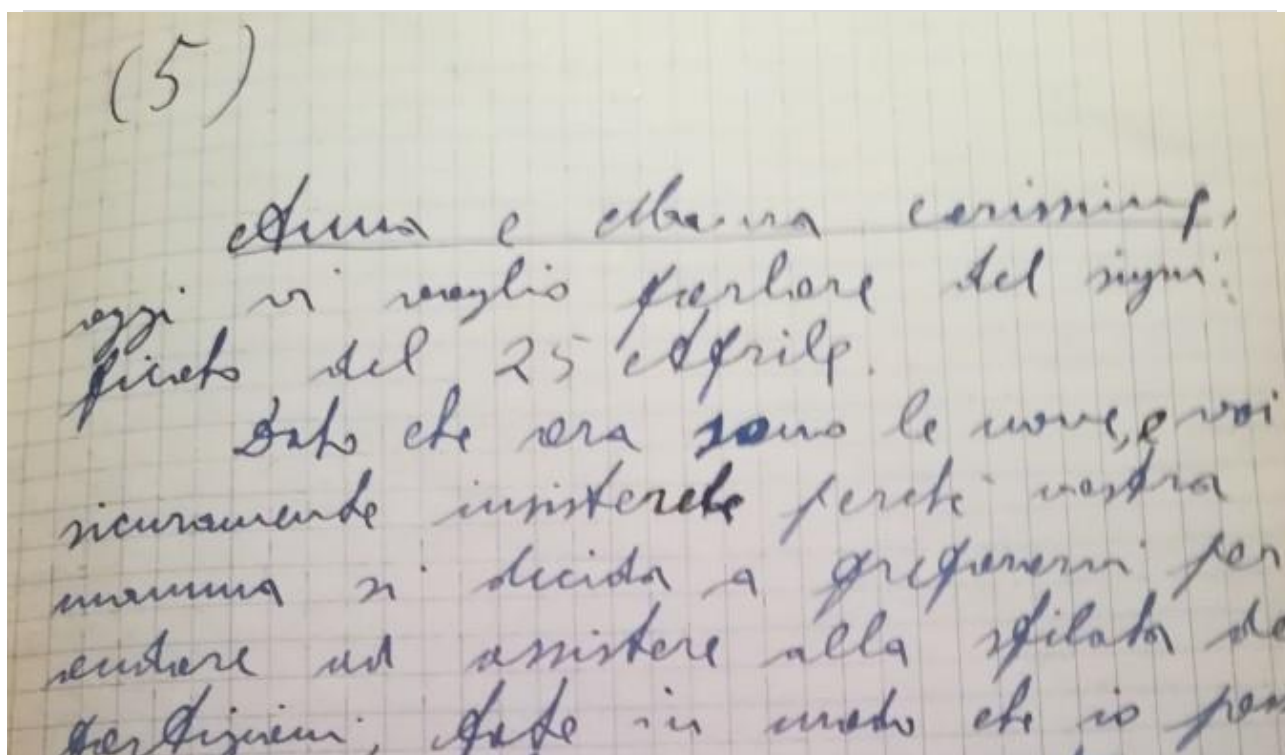 (5)
Anna e Maura carissime,
oggi vi voglio parlare del signi:
ficato del 25 Aprile.
Dato che ora sono le nove, e voi
sicuramente insisterete perché vostra
mamma si decida a prepararvi per
andare ad assistere alla sfilata
partigiani, fate in modo che io